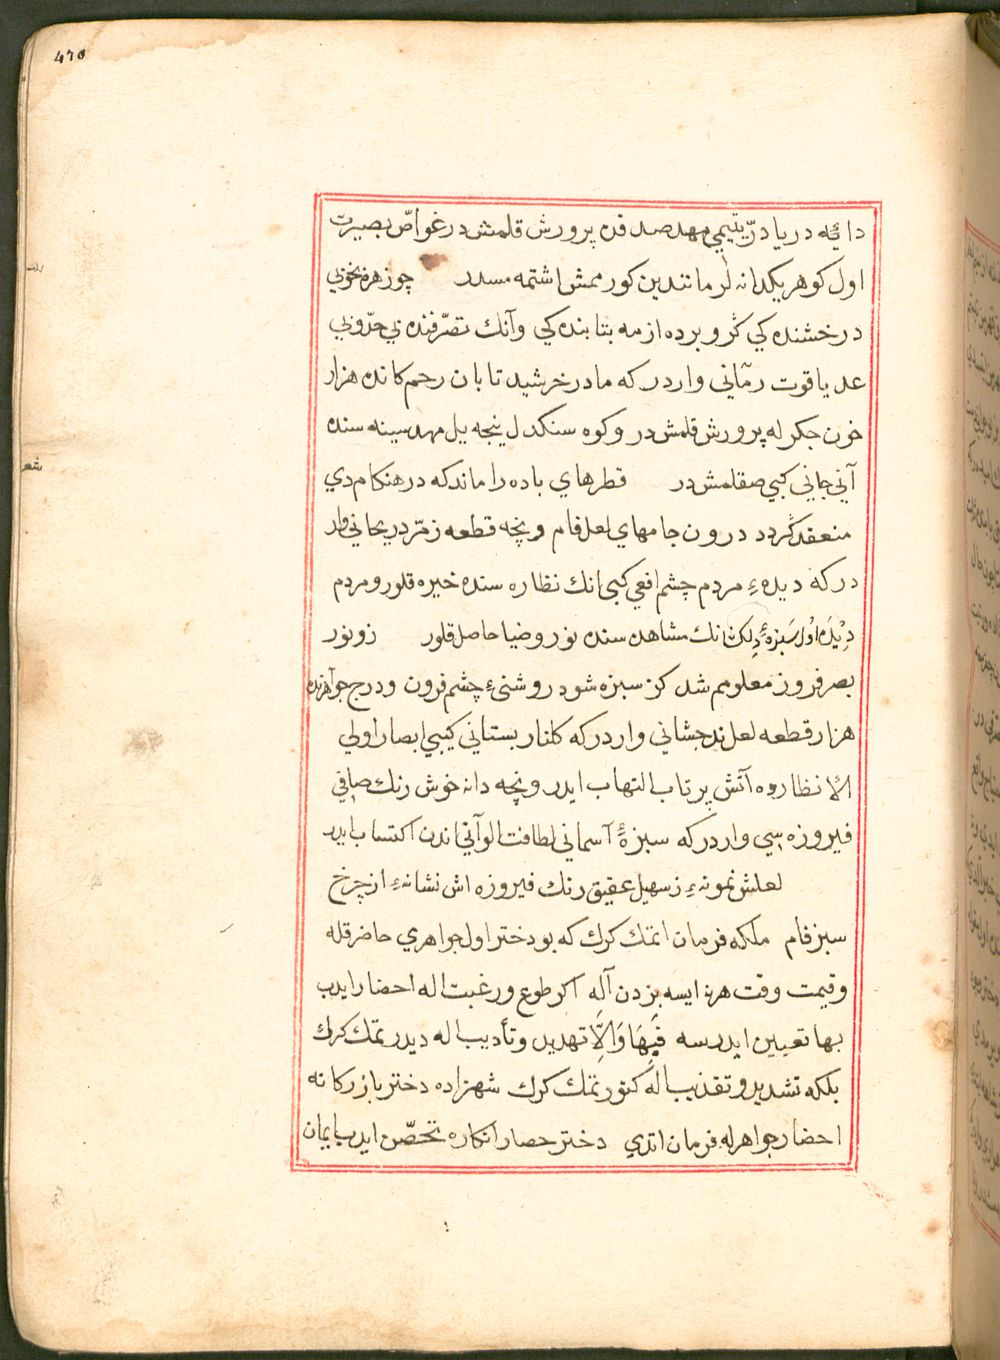 ٤٦٥
دایه دریا درّ یتیمی مهد صدفده پرورش قلمش در غوّاص بصیرت
اول کوهر یکدانه لر مانندین کورممش اشتمه مسدر چو زهره بخوبی
درخشندکی کرو برده از مه بتابندکی وآنك تصرّفنده بی حدّ و بی
عد یاقوت رمّانی واردر که مادر خرشید تابان رحم کانده هزار
خون جکر له پرورش قلمش در و کوه سنکدل لینجه ییل مهد سینه سنده
آنی جانی کبی صقلمش در قطرهای باده را ماند که در هنکام دی
منعقد کردد درون جامهای لعل فام و نچه قطعه زمّرد ریحانی وار
در که دیدهٔ مردم چشم افعی کبی انك نظاره سنده خیره قلور و مردم
دیده اول سبزهٔ دلکشانك مشاهده سنده نور و ضیا حاصل قلور زو نور
بصر فروز معلومم شد کز سبزه شود روشنیٔ چشم فزون و درج جواهرنده
هزار قطعه لعل بدخشانی واردر که کلنار بستانی کیبی ابصار اولی
الانظاروه آتش پرتاب التهاب ایدر و نچه دانه خوش رنك صافی
فیروزه سی واردر که سبزهٔ آسمانی لطافت الوآنی اندن اکتساب ایدر
لعلش نمونهٔ ز سهیل عقیق رنك فیروزه اش نشانهٔ از چرخ
سبز فام ملکه فرمان اتمك کرك که بو دختر اول جواهری حاضر قله
و قیمت وقت هر نه ایسه بزدن آله اکر طوع و رغبت اله احضار ایدب
بها تعیین ایدرسه فبها والّا تهدید و تأدیب اله دیدرتمك کرك
بلکه تشدید و تعذیب اله کتورتمك کرك شهزاده دختر بازرکانه
احضار جواهر له فرمان اتدی دختر حصار انکاره تحصّن ایدب ایمان
شعر